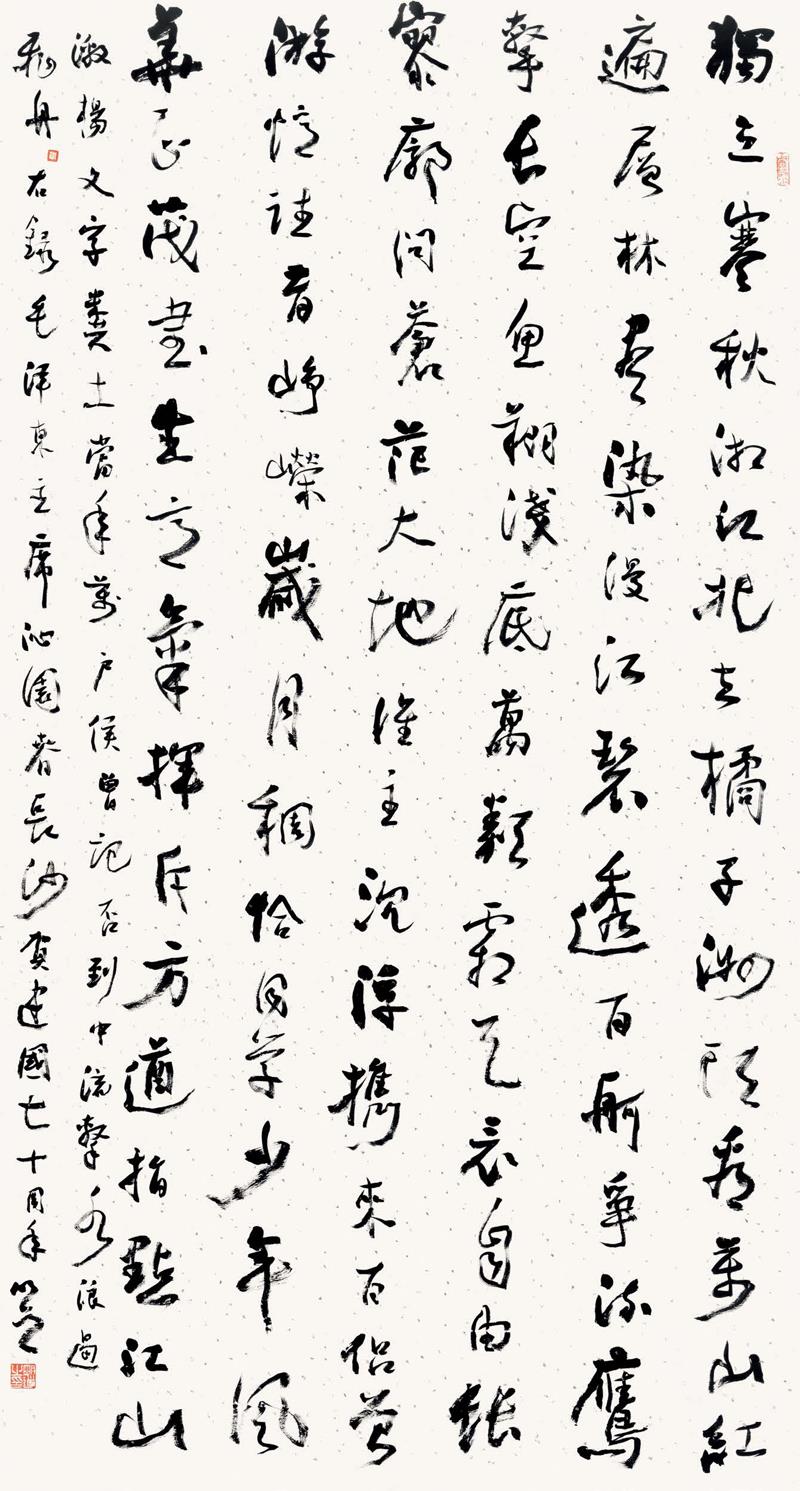 獨立寒秋湘江北去橘子洲頭看萬山紅
遍層林盡染漫江碧透百舸爭流鷹
擊長空魚翔淺底萬類霜天競自由悵
寥廓問蒼茫大地誰主沉浮攜來百侶曾
游憶往昔崢嶸歲月稠恰同學少年風
華正茂書生意氣揮斥方遒指點江山
激揚文字糞土當年萬戶侯曾記否到中流擊水浪遏
飛舟右錄毛澤東主席沁園春長沙賀建國七十周年